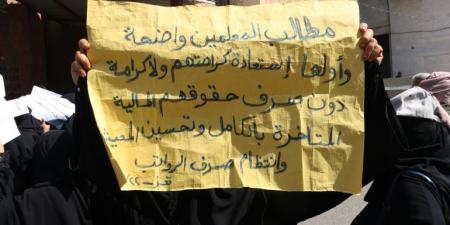 مطالب المعلمين واضحة
وأولها إستعادة كرامتهم ولا كرامة
دون صرف حقوقهم المالية
المتأخرة بالكامل وتحسين المعيشة
وانتظام صرف الرواتب